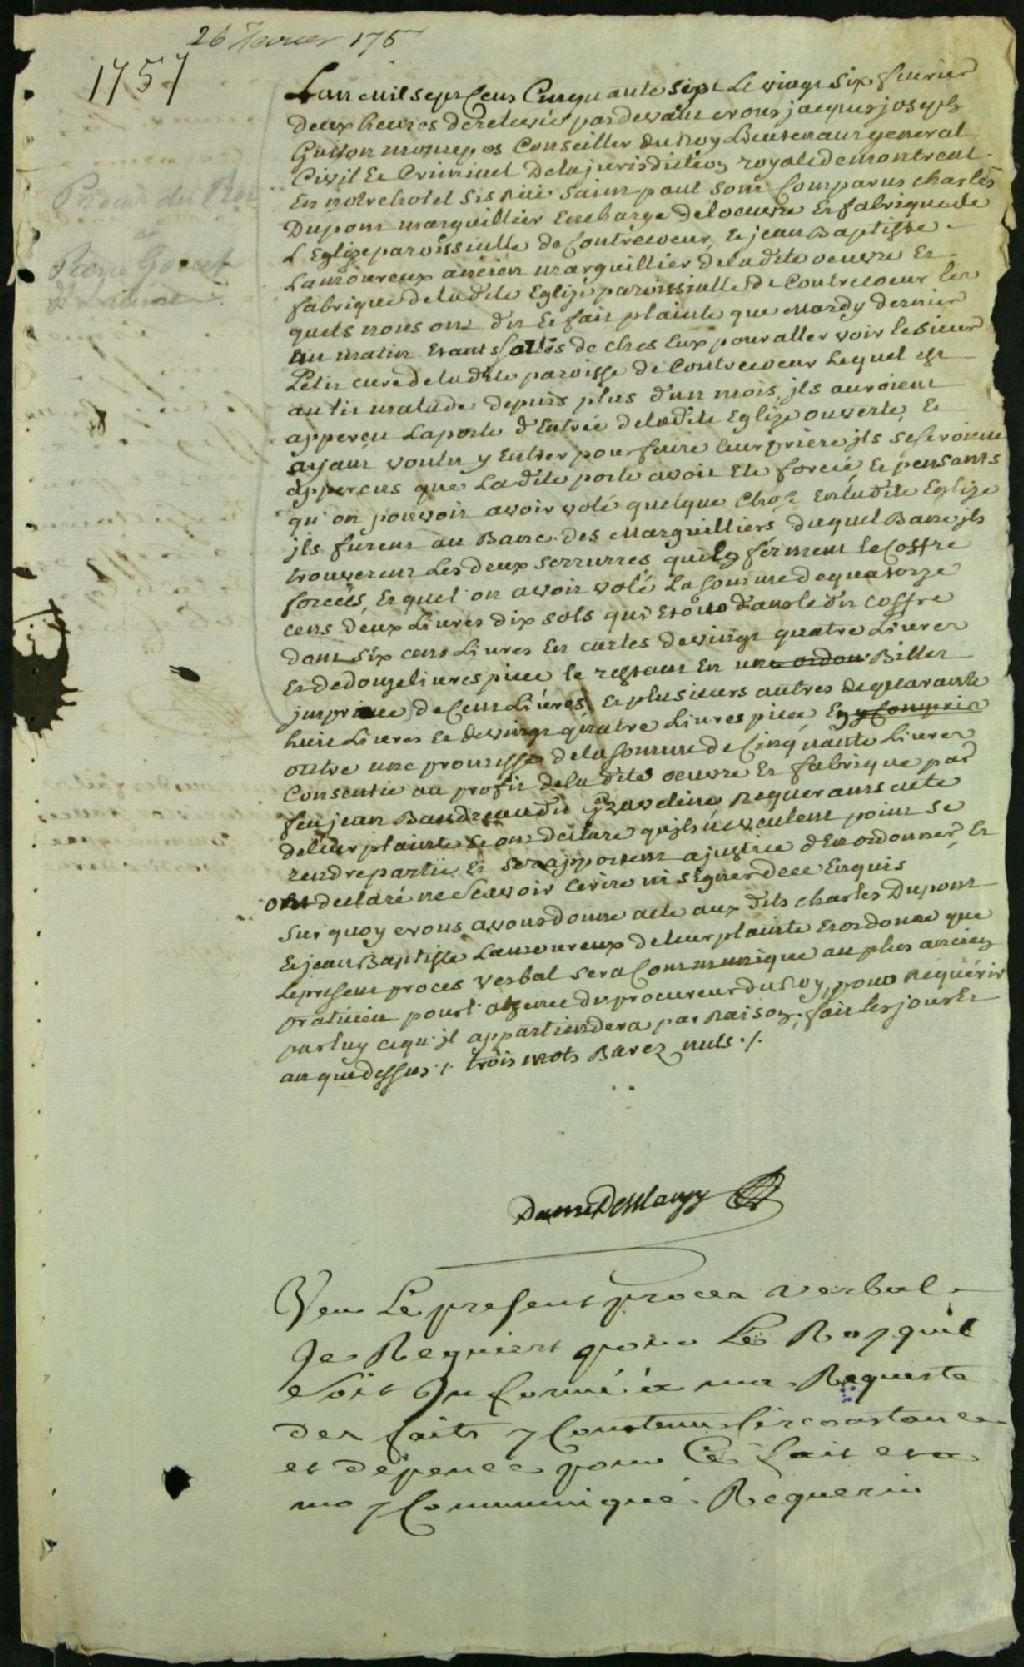 26 fevrier 175
1757
L'an mil sept Cens Cinquante Sept Le vingt Six fevrier
deux heures de relevée pardevant nous jacques joseph
Guiton monrepos Conseiller du Roy Lieutenant general
Civil Et Criminel De la jurisdiction royale de montreal
En notre hotel sis Rüe Saint paul Sont Comparus charles
Dupont marguillier En charge de l'oeuvre Et fabrique de
L'Eglize paroissialle de Contrecoeur, Et jean Baptiste
Lamoureux ancien marguillier de la dite oeuvre Et
fabrique de la dite Eglize paroissialle de Contrecoeur les
quels nous ont dit Et fait plainte que Mardy dernier
au matin Etants sortis de chés Eux pour aller voir le Sieur
Petit curé de la dite paroisse de Contrecoeur Lequel est
au lit malade depuis plus d'un mois, jls auroient
apperçu La porte d'Entrée de la dite Eglize ouverte, Et
ayant voulu y Entrer pour faire leur priere jls se seroient
apperçus que La dite porte avoit Eté forcée, Et pensants
qu'on pouvoit avoir volé quelque choze En la dite Eglize
jls furent au Banc des Marguilliers duquel Banc jls
trouverent Les deux serrures qui ferment le Coffre
forcées, Et quel on avoit volé La somme de quatorze
cens deux Livres dix sols qui Etoit dans le dit Coffre
dont six cens Livres En cartes de vingt quatre Livres
Et de douze livres piece le restant En une ordon Billet
jmprimée de Cent Livres, Et plusieurs autres de quarante
huit Livres Et de vingt quatre Livres piece Et y Compris
outre une promesse de la somme de Cinquante Livres
Consentie au profit de la dite oeuvre Et fabrique par
feu jean Baudreau dit Graveline Requerants acte
de leur plainte Et ont declaré qu'jls ne veulent point se
rendre partie Et se rapportent a justice d'En ordonner, Et
ont declaré ne Scavoir Ecrire ni Signer de ce Enquis
Sur quoy nous avons donné acte aux dits charles Dupont
Et jean Baptiste Lamoureux de leur plainte Et ordonné que
Le present proces verbal sera Communiqué au plus ancien
praticien pour l'absence du procureur du Roy, pour Requérir
par luy ce qu'jl appartiendera par Raison, fait les jour Et
an que dessus ./. trois mots Barez nuls ./.
Veu Le present proces verbal
Je Requiers pour Le Roy quil
Soit Informé a ma Requeste
des faits y Contenus Circonstances
et dependances pour Ce fait et a
moy Communiqué Requerir